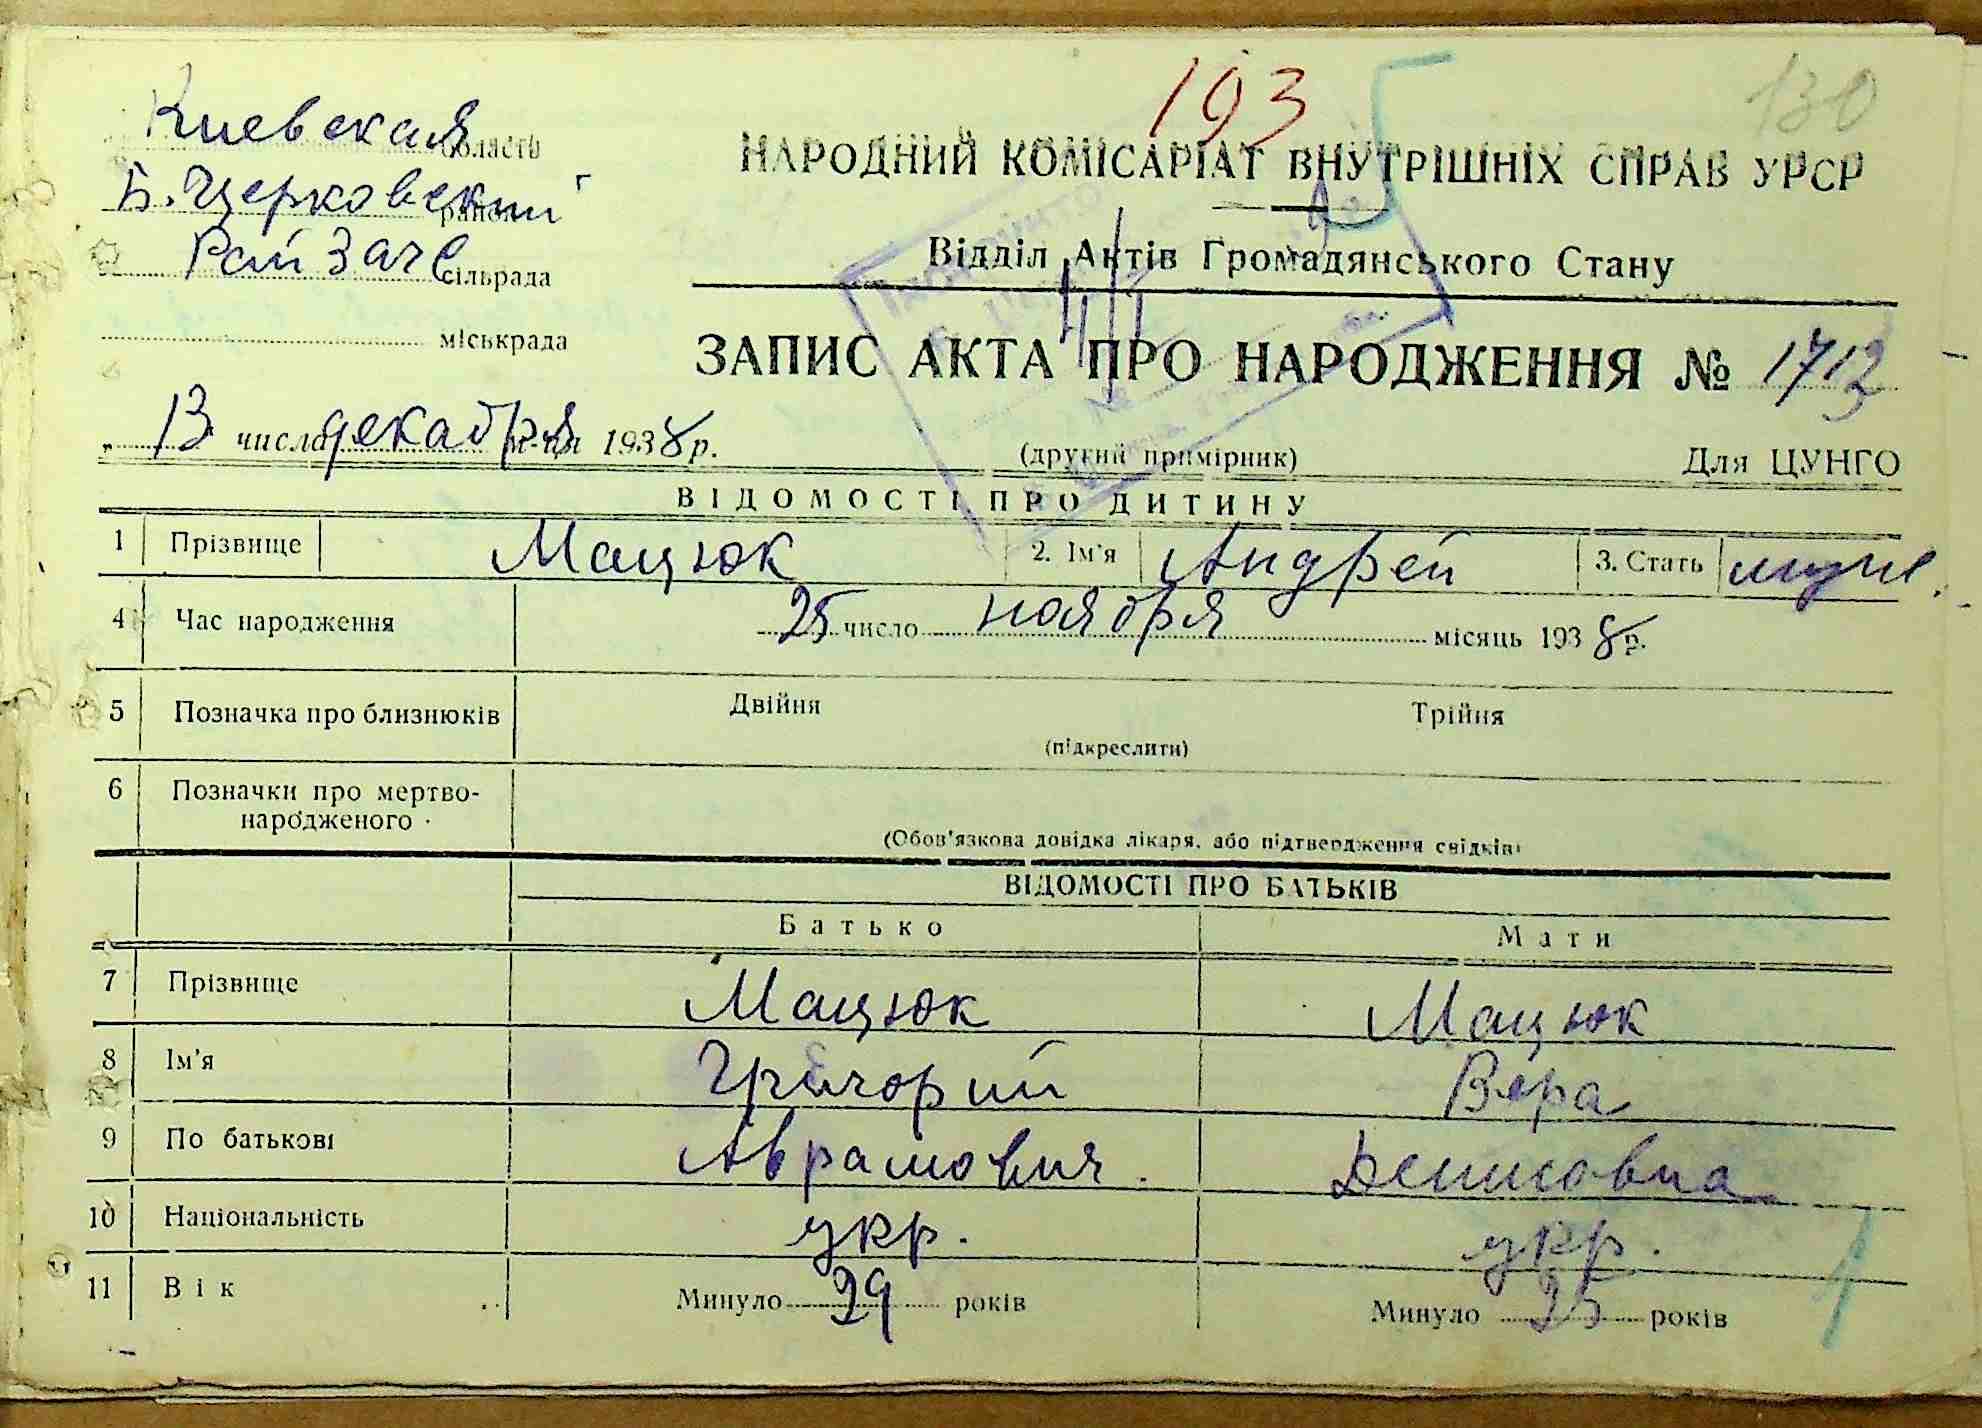 193 5
130
Киевская область
Б. Церковский район
РайЗагс сільрада
міськрада
НАРОДНИЙ КОМІСАРІАТ ВНУТРІШНІХ СПРАВ УРСР
Відділ Актів Громадянського Стану
ЗАПИС АКТА ПРО НАРОДЖЕННЯ № 1713
„ 13 числа декабря м-ця 1938 р.
(другий примірник)
Для ЦУНГО
ВІДОМОСТІ ПРО ДИТИНУ
1 Прізвище Мацюк 2. Ім'я Андрей 3. Стать муж.
4 Час народження 25 число ноября місяць 1938 р.
5 Позначка про близнюків Двійня Трійня
(підкреслити)
6 Позначки про мертво-
народженого
(Обов'язкова довідка лікаря, або підтвердження свідків)
ВІДОМОСТІ ПРО БАТЬКІВ
Батько Мати
7 Прізвище Мацюк Мацюк
8 Ім'я Григорий Вера
9 По батькові Аврамович. Денисовна
10 Національність укр. укр.
11 Вік Минуло 29 років Минуло 25 років